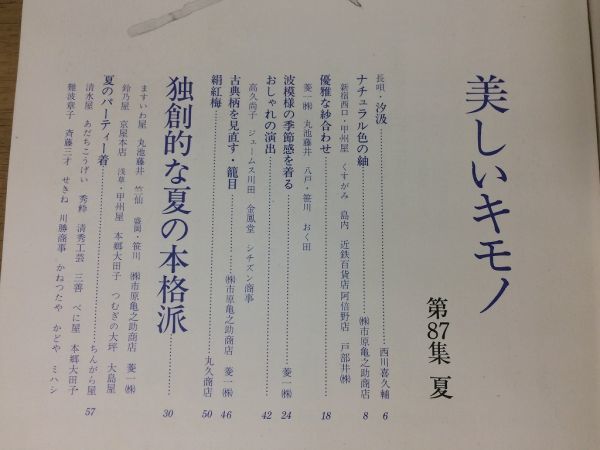 美しいキモノ
第87集 夏
長唄・汐汲……西川喜久輔 6
ナチュラル色の紬……㈱市原亀之助商店 8
新宿西口・甲州屋 くすがみ 島内 近鉄百貨店阿倍野店 戸部井㈱
優雅な紗合わせ……18
菱一㈱ 丸池藤井 八戸・笹川 おく田
波模様の季節感を着る……菱一㈱ 24
おしゃれの演出……42
高久尚子 ジェームス川田 金鳳堂 シチズン商事
古典柄を見直す・籠目……㈱市原亀之助商店 菱一㈱ 46
絹紅梅……丸久商店 50
独創的な夏の本格派……30
ますいわ屋 丸池藤井 竺仙 盛岡・笹川 ㈱市原亀之助商店 菱一㈱
鈴乃屋 京屋本店 浅草・甲州屋 本郷大田子 つむぎの大坪 大島屋
夏のパーティー着……ちんがら屋 57
清水屋 あだちこうげい 秀粋 清秀工芸 三善 べに屋 本郷大田子
難波章子 斉藤三才 せきね 川勝商事 かねつたや かどや ミハシ